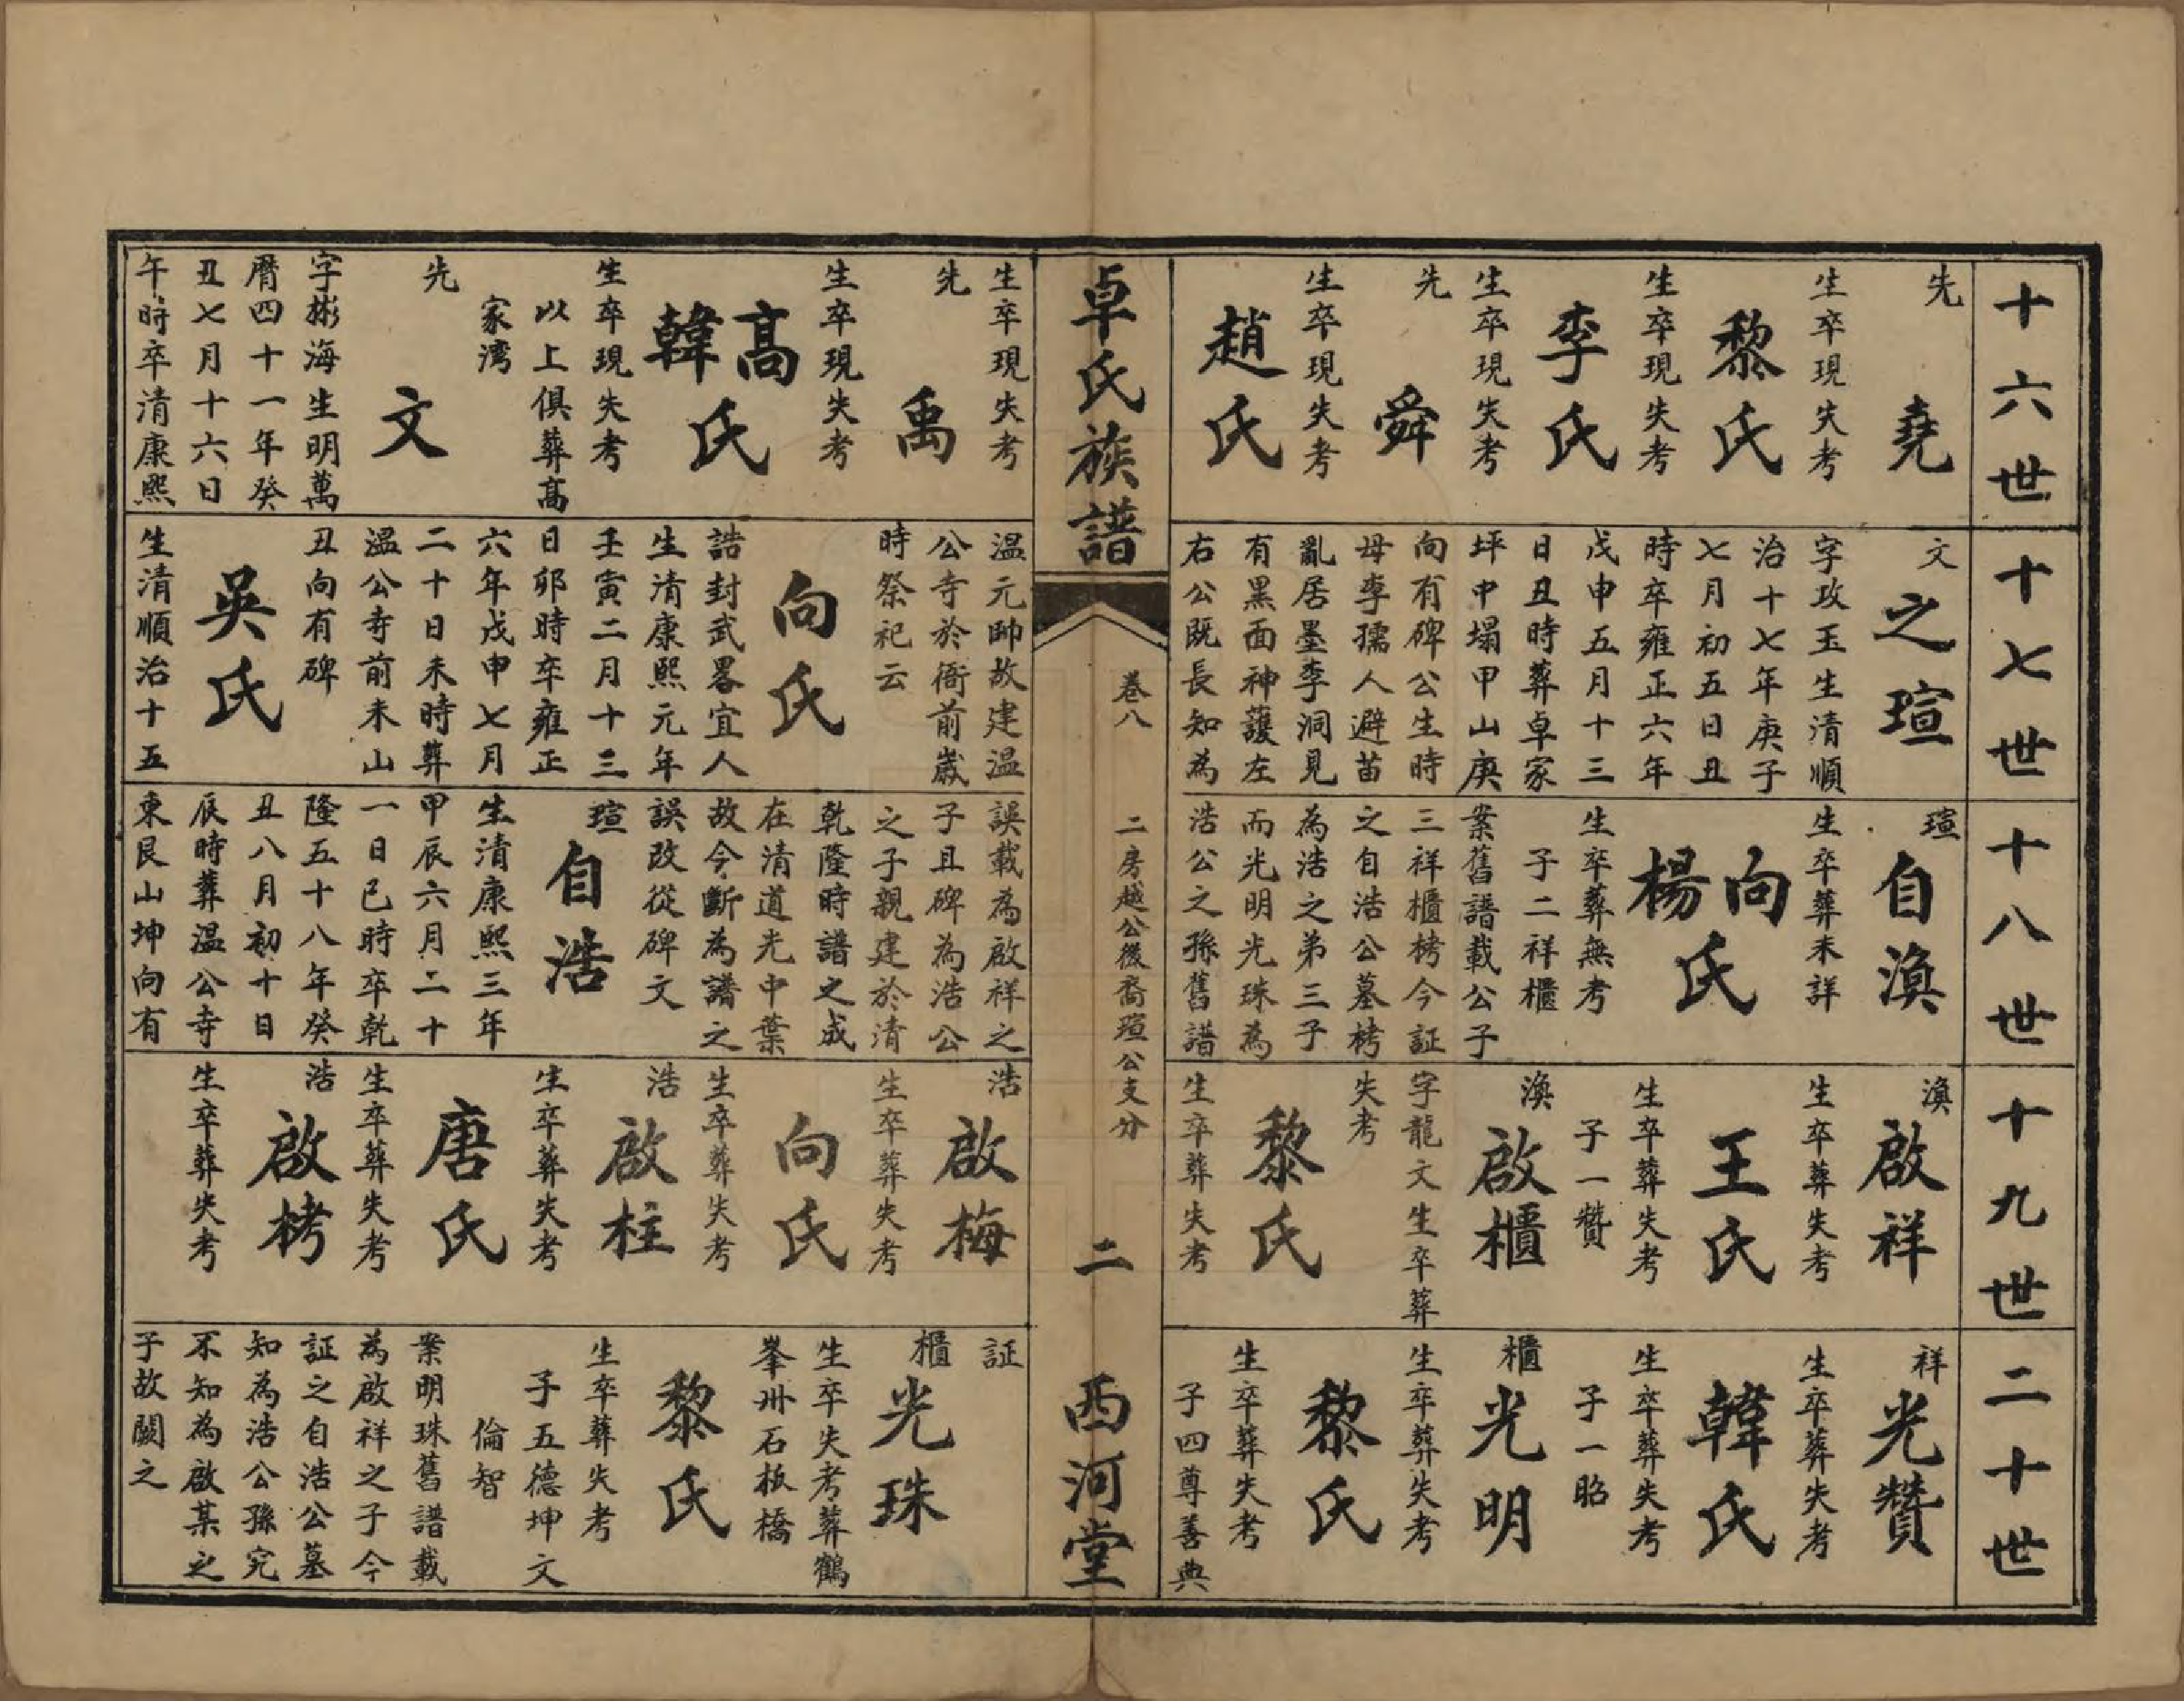 十六世
先
堯
生卒現失考
黎氏
生卒現失考
李氏
生卒現失考
先
舜
生卒現失考
趙氏
十七世
文
之瑄
字玫玉生清順
治十七年庚子
七月初五日丑
時卒雍正六年
戊申五月十三
日丑時葬卓家
坪中塌甲山庚
向有碑公生時
母李孺人避苗
亂居墨李洞見
有黑面神護左
右公既長知為
十八世
瑄
自渙
生卒葬未詳
向
楊
氏
生卒葬無考
子二祥櫃
案舊譜載公子
三祥櫃栲今証
之自浩公墓栲
為浩之弟三子
而光明光珠為
浩公之孫舊譜
十九世
渙
啟祥
生卒葬失考
王氏
生卒葬失考
子一贊
渙
啟櫃
字龍文生卒葬
失考
黎氏
生卒葬失考
二十世
祥
光贊
生卒葬失考
韓氏
生卒葬失考
子一昭
櫃
光明
生卒葬失考
黎氏
生卒葬失考
子四尊善典
卓氏族譜
卷八
二房越公後裔瑄公支分
二
西河堂
生卒現失考
先
禹
生卒現失考
高
韓
氏
生卒現失考
以上俱葬高
家湾
先
文
字彬海生明萬
曆四十一年癸
丑七月十六日
午時卒清康熙
温元帥故建温
公寺於衙前歲
時祭祀云
向氏
誥封武畧宜人
生清康熙元年
壬寅二月十三
日卯時卒雍正
六年戊申七月
二十日未時葬
温公寺前未山
丑向有碑
吳氏
生清順治十五
誤載為啟祥之
子且碑為浩公
之子親建於清
乾隆時譜之成
在清道光中葉
故今斷為譜之
誤改從碑文
瑄
自浩
生清康熙三年
甲辰六月二十
一日巳時卒乾
隆五十八年癸
丑八月初十日
辰時葬温公寺
東艮山坤向有
浩
啟梅
生卒葬失考
向氏
生卒葬失考
浩
啟柱
生卒葬失考
唐氏
生卒葬失考
浩
啟栲
生卒葬失考
証
櫃
光珠
生卒失考葬鶴
峯州石板橋
黎氏
生卒葬失考
子五德坤文
倫智
案明珠舊譜載
為啟祥之子今
証之自浩公墓
知為浩公孫究
不知為啟某之
子故闕之